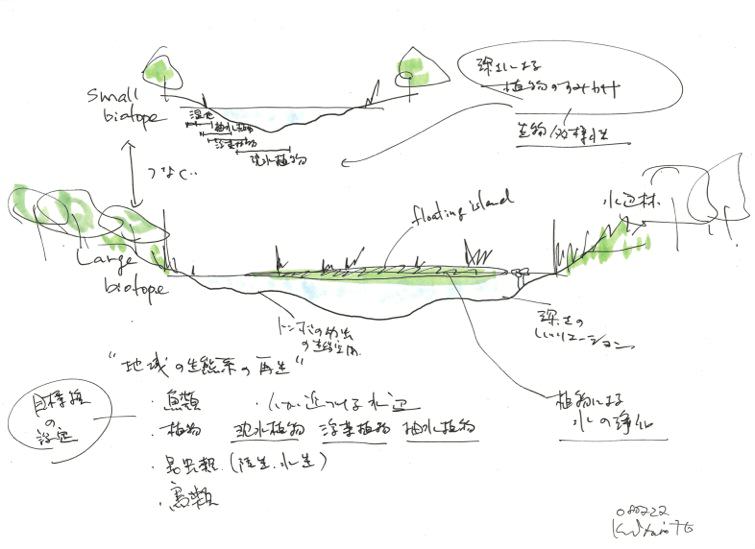 small
biotope
深さによる
植物のすみわけ
生物多様性
湿生
抽水植物
浮葉植物
沈水植物
つなぐ
floating island
水辺林
Large
biotope
トンボの幼虫
の生息空間
深さの
バリエーション
"地域の生態系の再生"
目標種
の
設定
・魚類 ・人が近づける水辺
・植物 沈水植物 浮葉植物 抽水植物
・昆虫類(陸生、水生)
・鳥類
植物による
水の浄化
080222